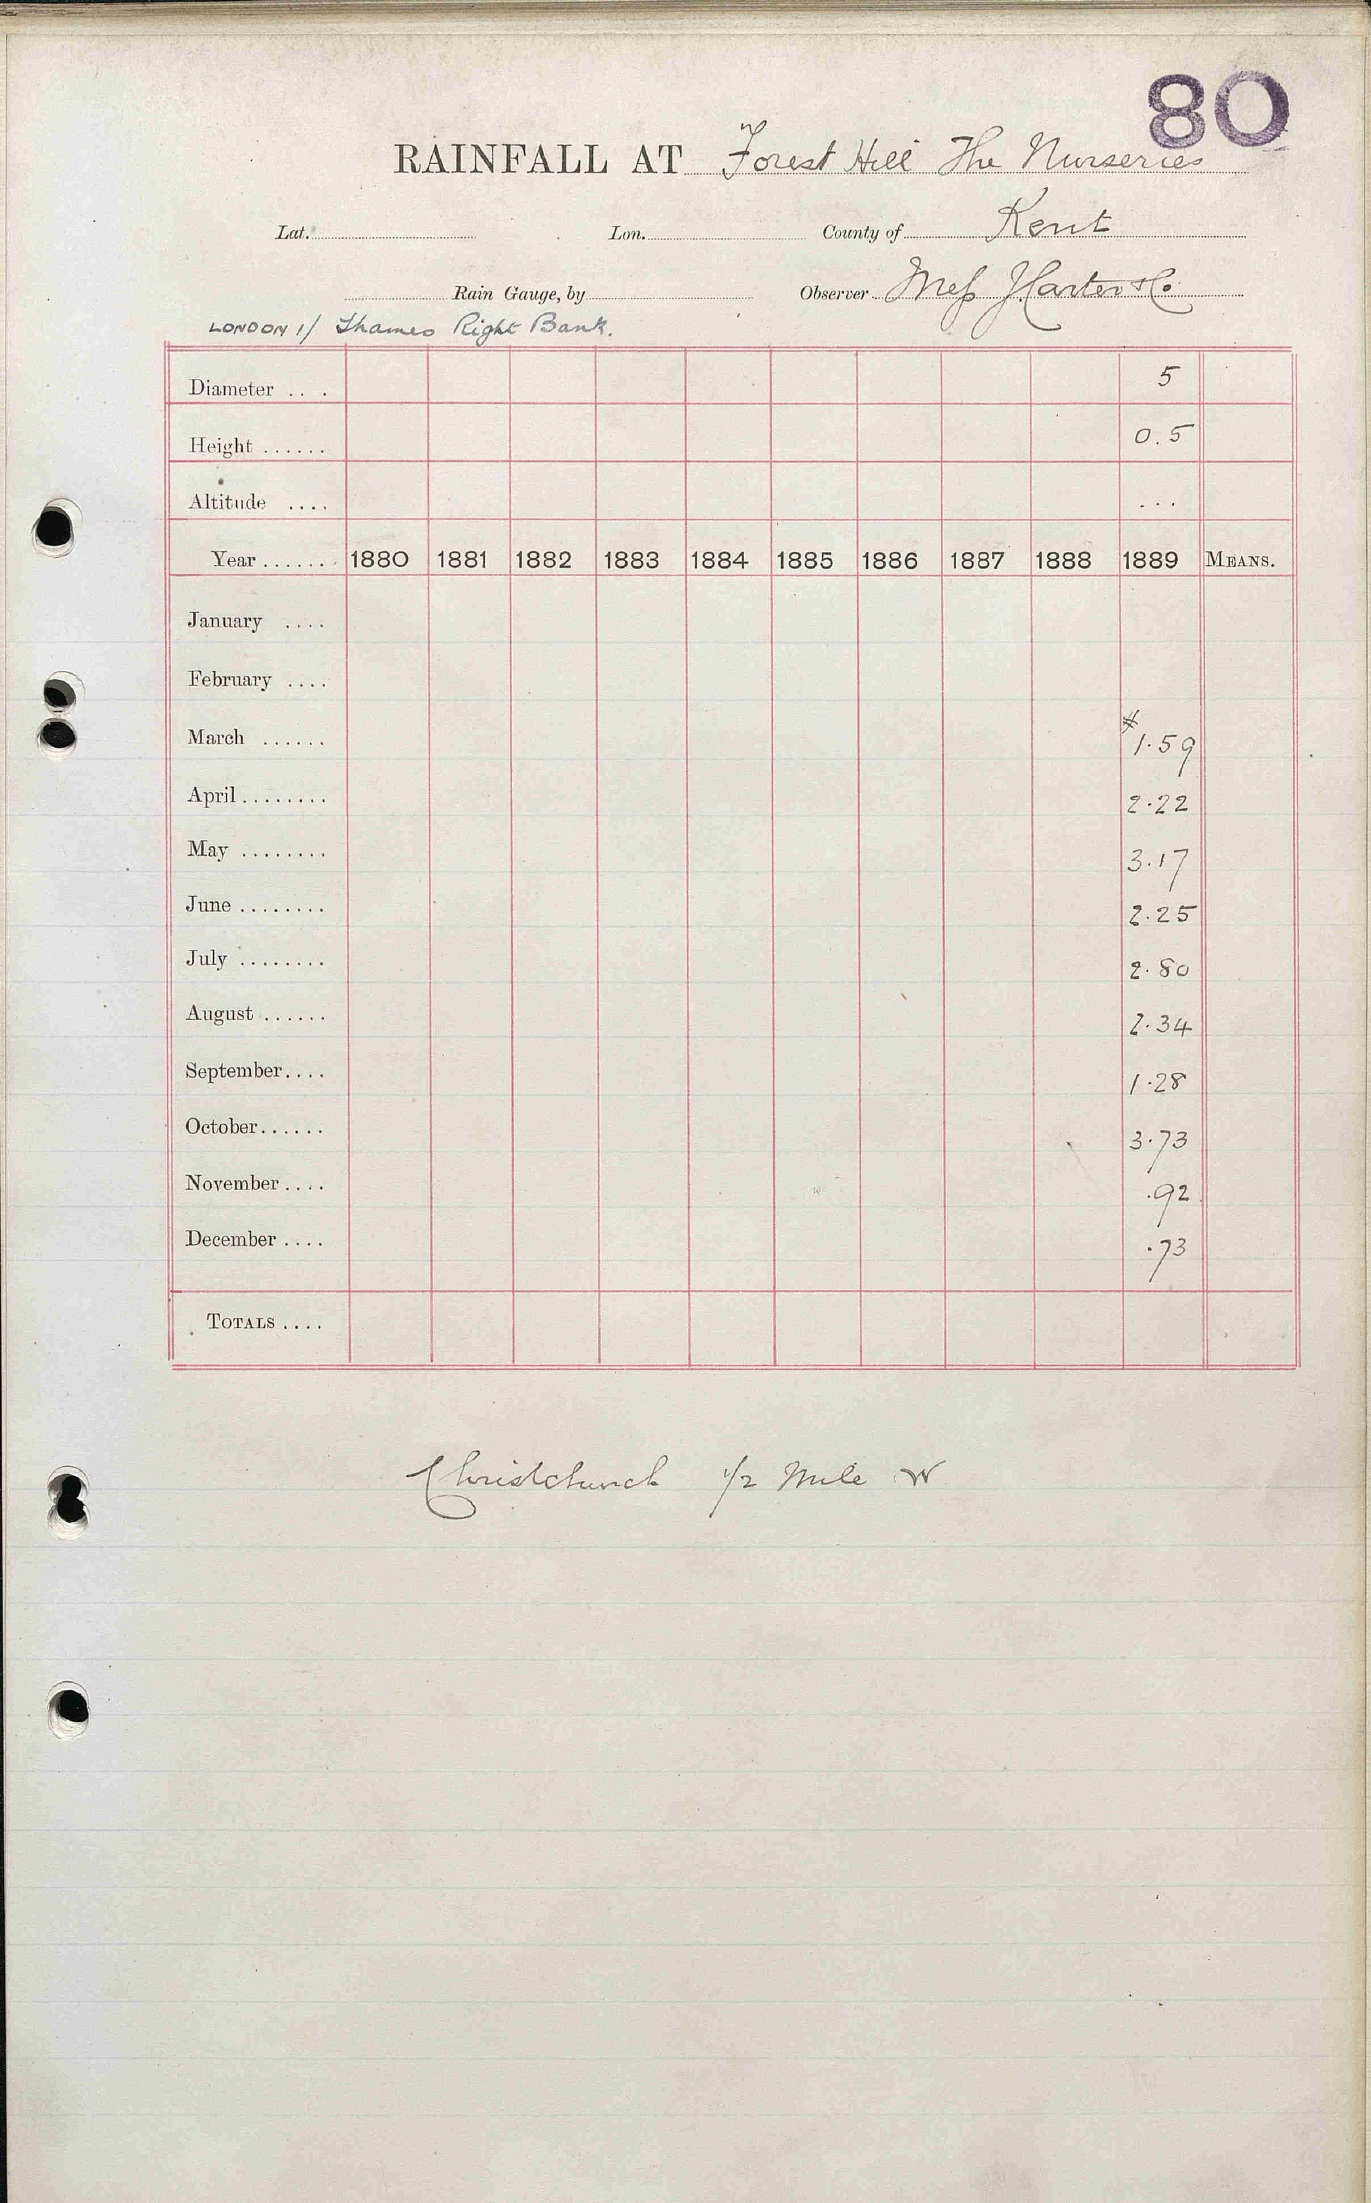 80
RAINFALL AT Forest Hill The Nurseries
Lat. Lon. County of Kent
Rain Gauge, by Observer Mess J Carter & Co
LONDON 1/ Thames Right Bank.
Diameter .... 5
Height ...... 0.5
Altitude .... ...
Year ....... 1880 1881 1882 1883 1884 1885 1886 1887 1888 1889 MEANS.
January ....
February ....
March ...... # 1.59
April ........ 2.22
May ........ 3.17
June ........ 2.25
July ........ 2.80
August ...... 2.34
September.... 1.28
October...... 3.73
November .... .92
December .... .73
TOTALS ....
Christchurch 1/2 Mile W